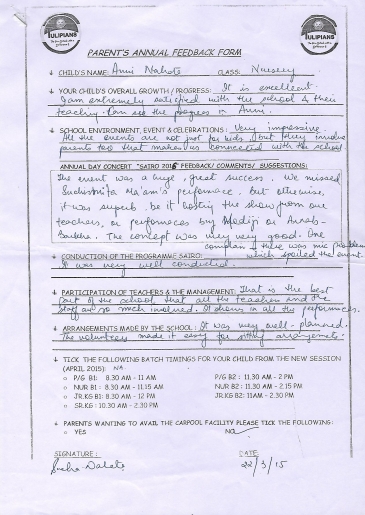 TULIPIANS
TULIPIANS
PARENT'S ANNUAL FEEDBACK FORM
CHILD'S NAME: CLASS: Nursery
YOUR CHILD'S OVERALL GROWTH / PROGRESS: It is excellent.
I am extremely satisfied with the school & their
teaching. I can see the progress in
SCHOOL ENVIRONMENT, EVENT & CELEBRATIONS: Very impressive.
All the events are not just for kids, but they involve
parents too that makes us connected with the school
ANNUAL DAY CONCERT "SAIRO 2015" FEEDBACK/ COMMENTS/ SUGGESTIONS:
The event was a huge, great success. We missed
Suchismita Ma'am's performance, but otherwise,
it was superb be it hosting the show from our
teachers, or performances by
The concept was very very good. One
complain : there was mic problem
CONDUCTION OF THE PROGRAMME SAIRO: which spoiled the event.
It was very well conducted.
PARTICIPATION OF TEACHERS & THE MANAGEMENT: That is the best
part of the school that all the teachers and the
staff are so much involved. It shows in all the performances.
ARRANGEMENTS MADE BY THE SCHOOL: It was very well-planned.
The volunteers made it easy for sitting arrangements.
TICK THE FOLLOWING BATCH TIMINGS FOR YOUR CHILD FROM THE NEW SESSION
(APRIL 2015): NA
P/G B1: 8.30 AM - 11 AM P/G B2 : 11.30 AM - 2 PM
NUR B1 : 8.30 AM - 11.15 AM NUR B2 : 11.30 AM - 2.15 PM
JR.KG B1: 8.30 AM - 12 PM JR.KG B2: 11AM - 2.30 PM
SR.KG : 10.30 AM - 2.30 PM
PARENTS WANTING TO AVAIL THE CARPOOL FACILITY PLEASE TICK THE FOLLOWING:
YES NO
SIGNATURE: DATE:
22/3/15